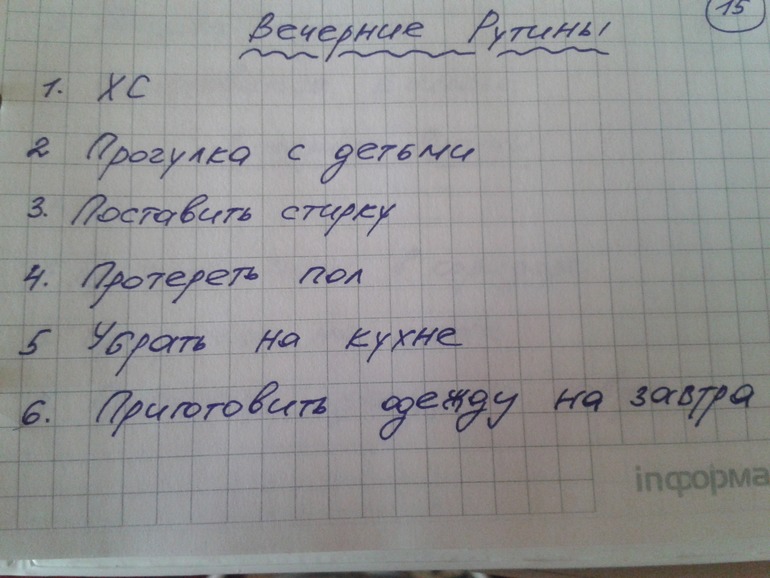 15
Вечерние Рутины
1. ХС
2 Прогулка с детьми
3. Поставить стирку
4. Протереть пол
5 Убрать на кухне
6. Приготовить одежду на завтра
inформа